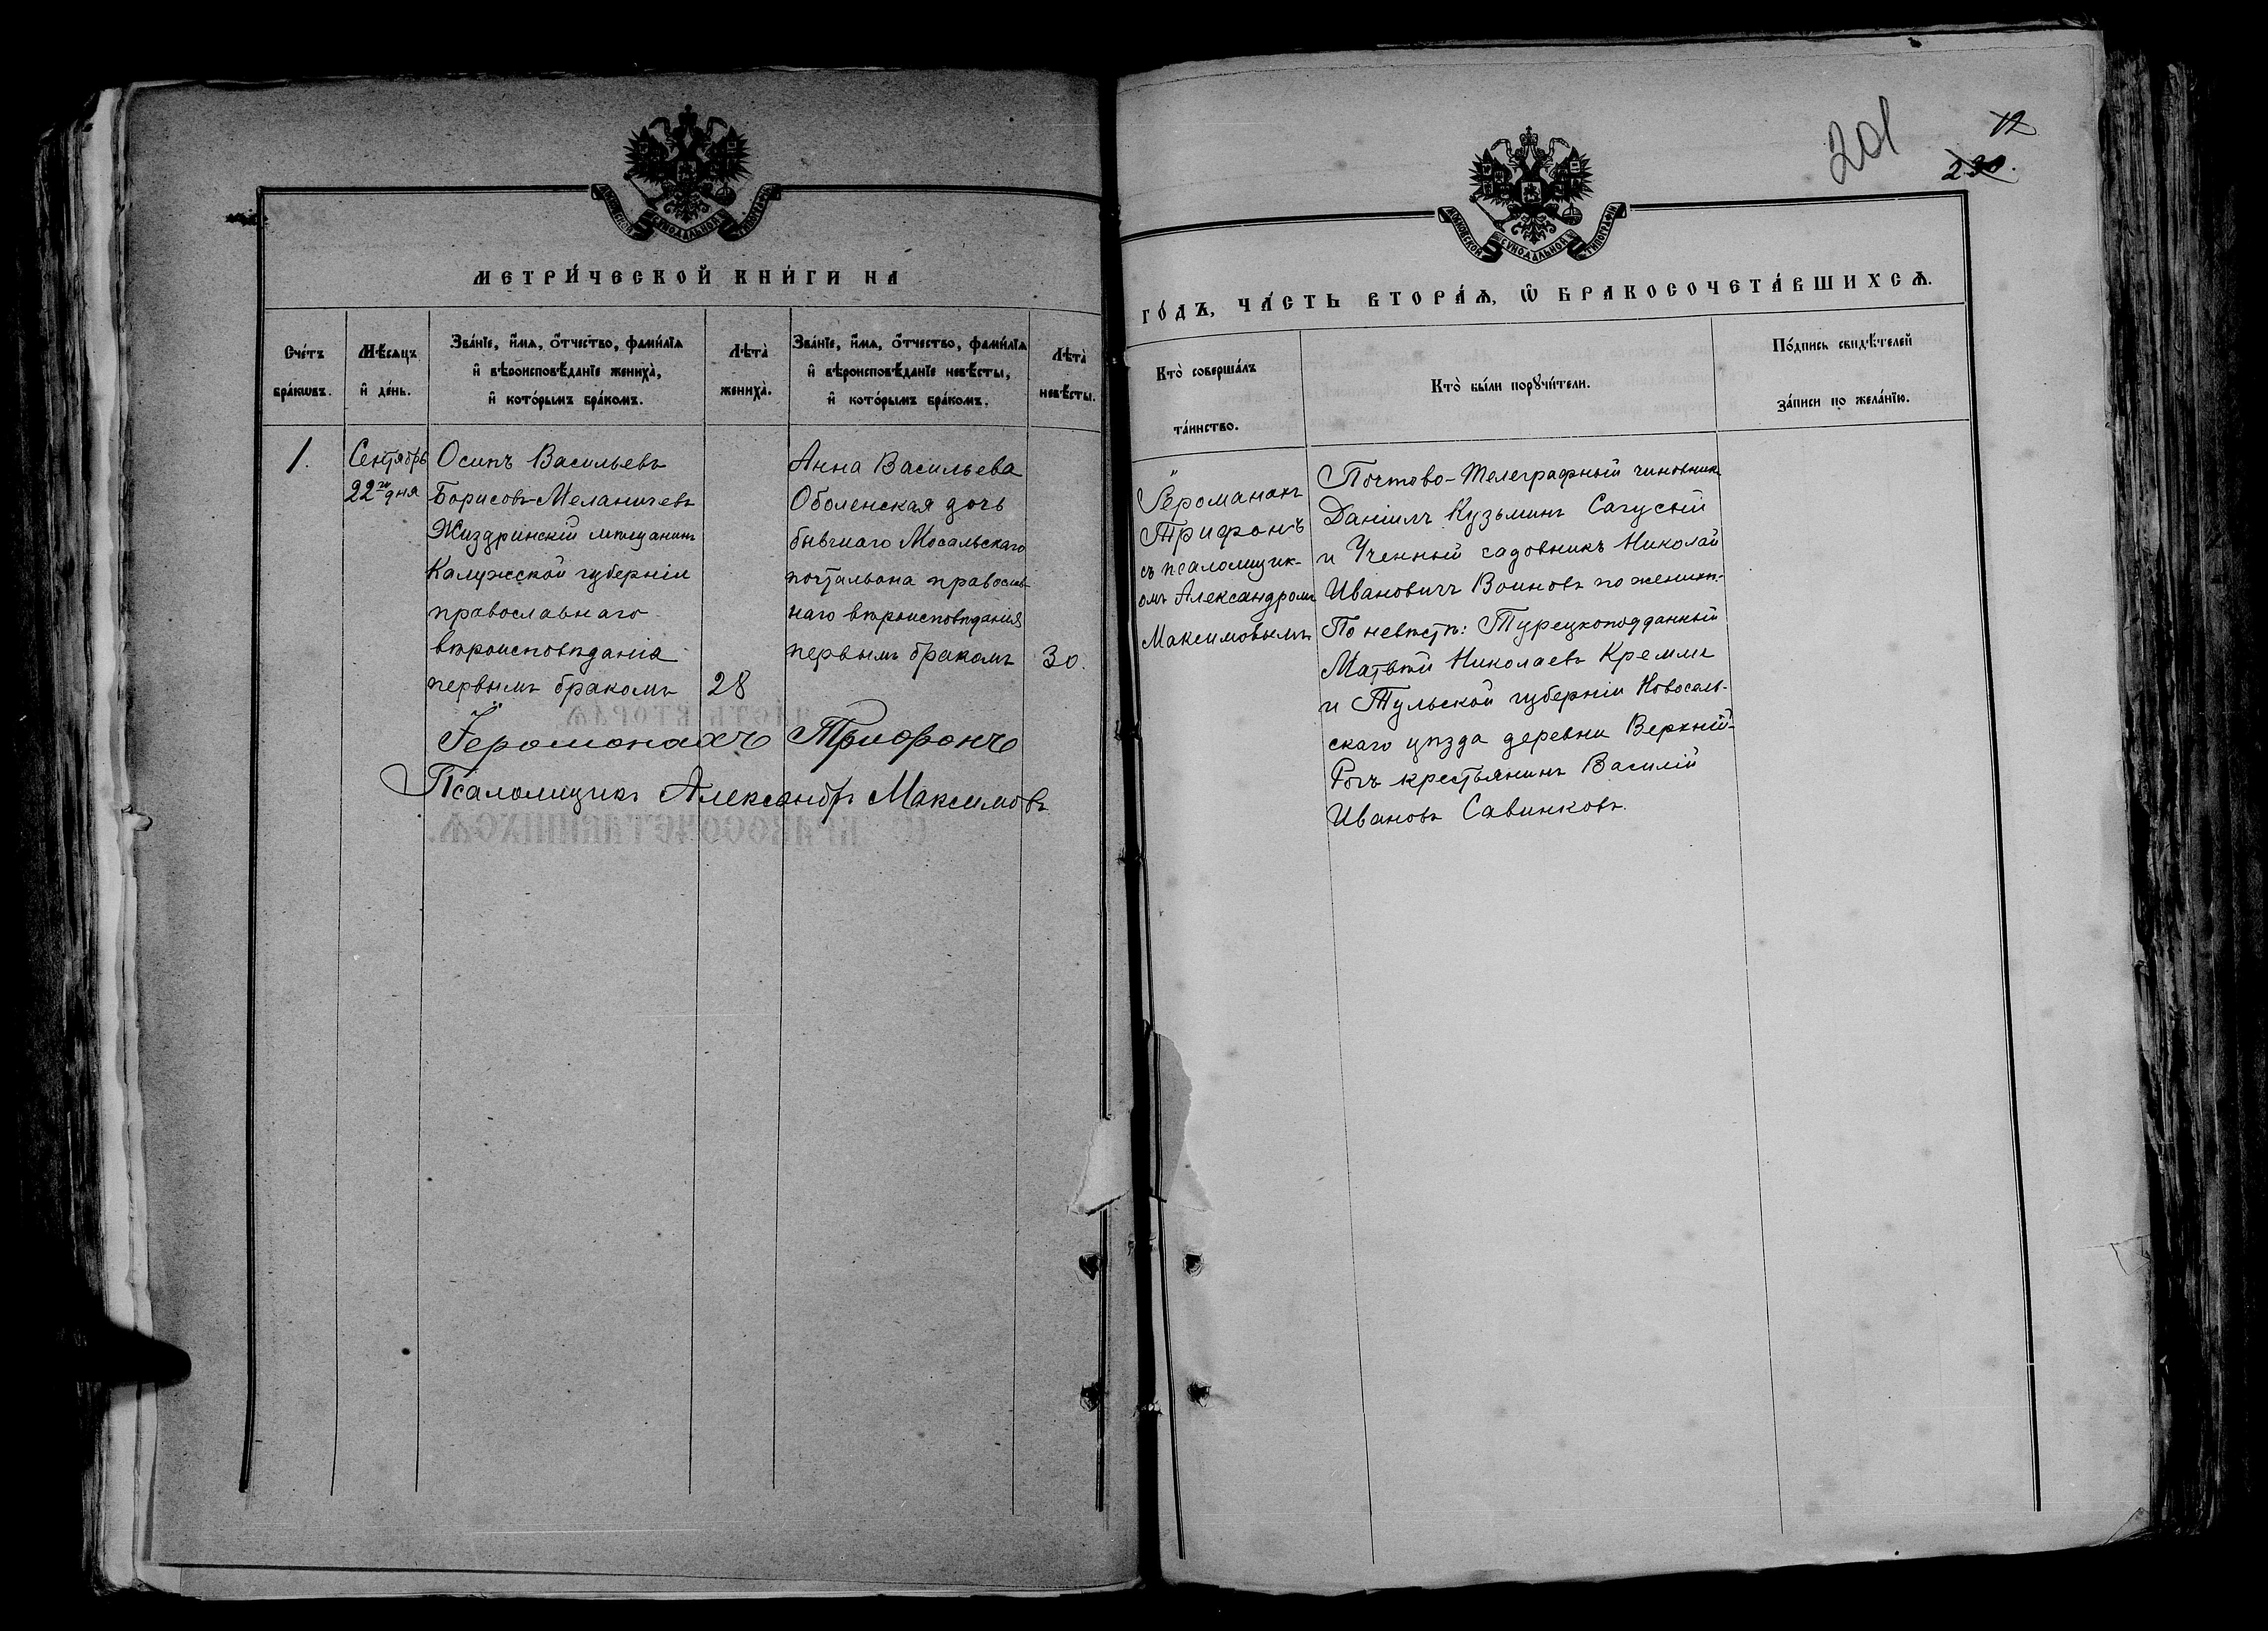 МОСКОВСКОЙ СѴНОДАЛЬНОЙ ТИПОГРАФІИ
МЕТРИ́ЧЕСКОЙ КНИ́ГИ НА
Сче́тъ бра́кѡвъ.
Мѣ́сѧцъ и҆ де́нь.
Зва́нїе, и҆́мѧ, ѻ҆́тчество, фами́лїѧ
и҆ вѣроисповѣ́данїе жениха̀,
и҆ кото́рымъ бра́комъ.
Лѣта̀ жениха̀.
Зва́нїе, и҆́мѧ, ѻ҆́тчество, фами́лїѧ
и҆ вѣроисповѣ́данїе невѣ́сты,
и҆ кото́рымъ бра́комъ.
Лѣта̀ невѣ́сты.
1.
Сентябрь
22го дня
Осипъ Васильевъ
Борисовъ-Меланичевъ
Жиздринскій мѣщанинъ
Калужской губерніи
православнаго
вѣроисповѣданія
первымъ бракомъ
28
Анна Васильева
Оболенская дочь
бывшаго Мосальскаго
почтальона православ-
наго вѣроисповѣданія
первымъ бракомъ
30.
Іеромонахъ Трифонъ
Псаломщикъ Александръ Максимовъ
201
12
230.
МОСКОВСКОЙ СѴНОДАЛЬНОЙ ТИПОГРАФІИ
ГО́ДЪ, ЧА́СТЬ ВТОРА́Ѧ, Ѡ҆ БРАКОСОЧЕТА́ВШИХСѦ.
Кто̀ соверша́лъ
та́инство.
Кто̀ бы́ли порꙋчи́тели.
По́дпись свидѣ́телей
за́писи по жела́нїю.
Іеромонахъ
Трифонъ
съ псаломщик-
омъ Александромъ
Максимовымъ
Почтово-Телеграфный чиновникъ
Даніилъ Кузьминъ Сагусій
и Ученный садовникъ Николай
Ивановичъ Воиновъ по женихѣ.
По невѣстѣ: Турецкоподданный
Матвѣй Николаевъ Кремли
и Тульской губерніи Новосель-
скаго уѣзда деревни Верхній-
Рогъ крестьянинъ Василій
Ивановъ Савинковъ.